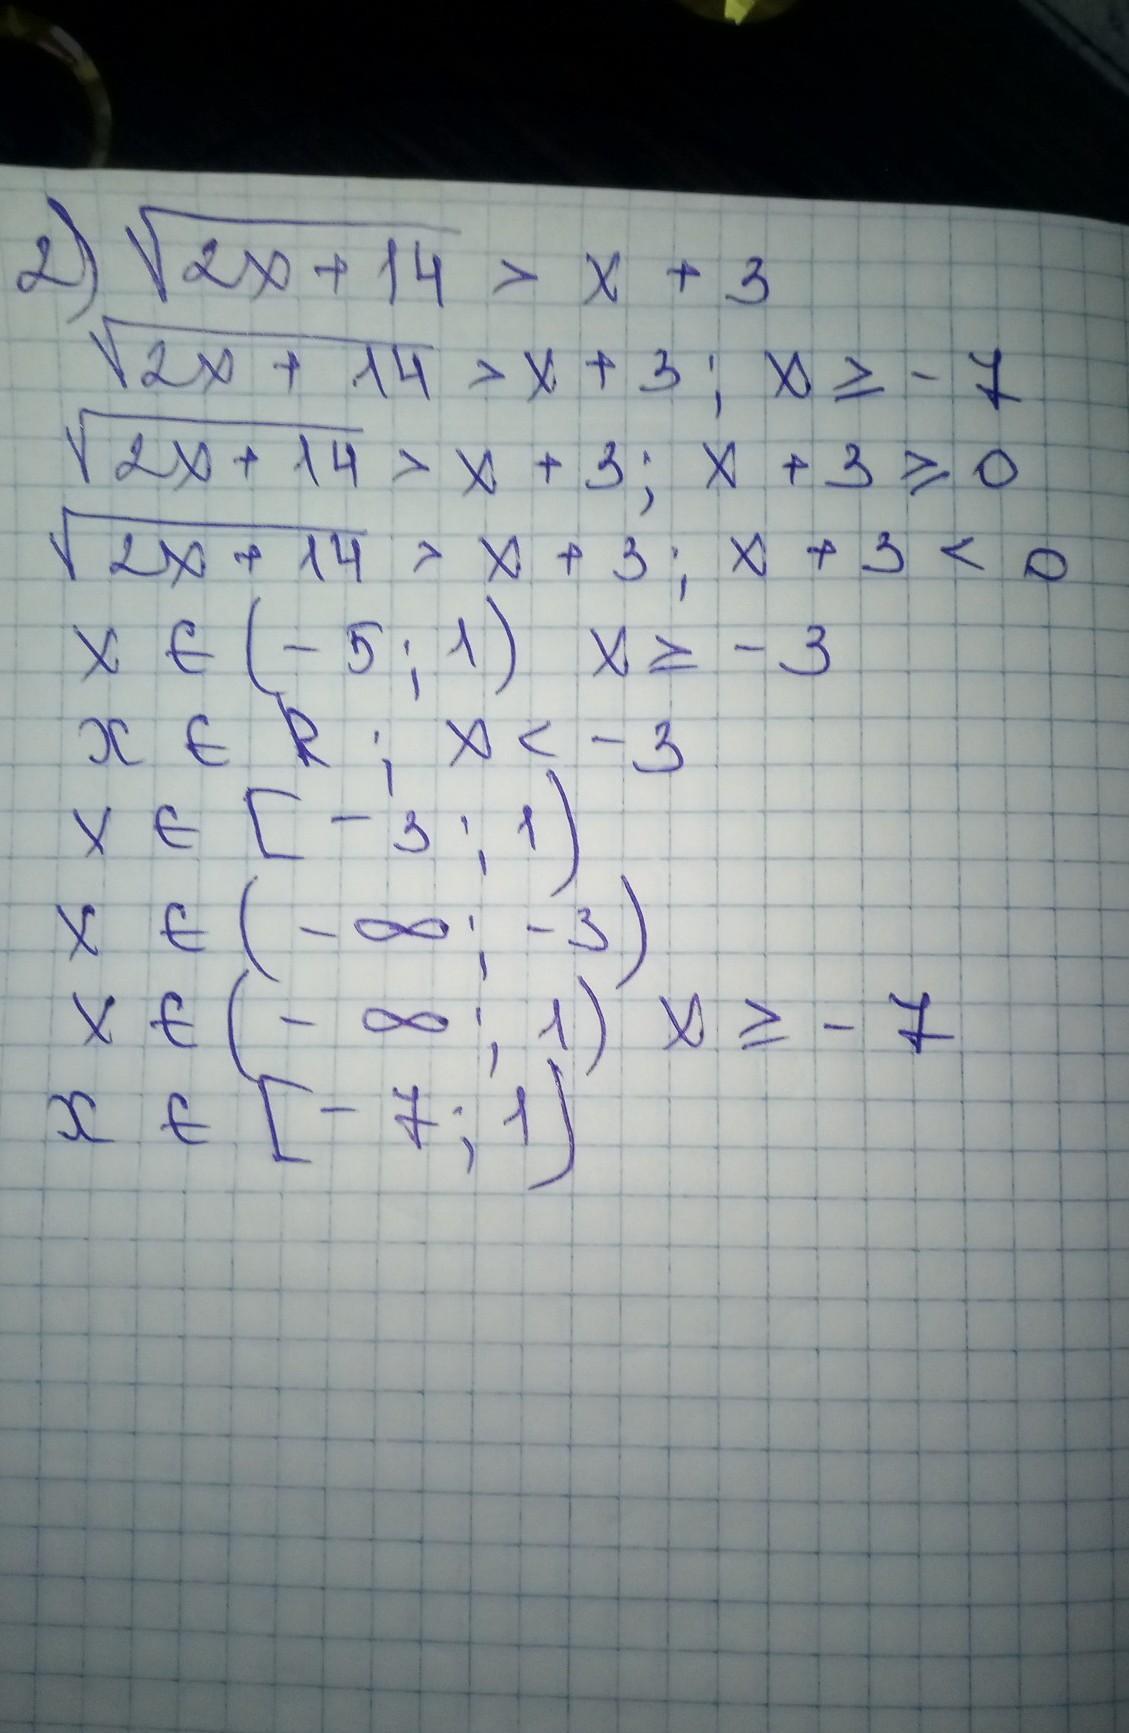 2) √2x + 14 > x + 3
√2x + 14 > x + 3; x ≥ - 7
√2x + 14 > x + 3; x + 3 ≥ 0
√2x + 14 > x + 3; x + 3 < 0
x ∈ (- 5; 1) x ≥ - 3
x ∈ R; x < - 3
x ∈ [- 3; 1)
x ∈ (- ∞; -3)
x ∈ (- ∞; 1) x ≥ - 7
x ∈ [- 7; 1)